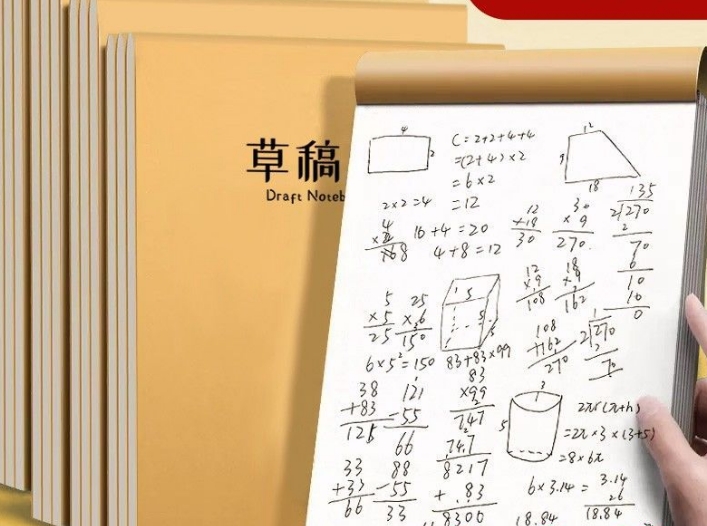 草稿
Draft Noteb
4
2
C=2+2+4+4
=(2+4)×2
=6×2
=12
2×2=4
16+4=20
4+8=12
12
9
18
12
+18
30
30
×9
270.
135
2√270
2
70
6
10
10
0
5
×5
25
25
×6
150
5
5
12
×9
108
18
×9
162
6×5²=150
83+83×99
108
+162
270
2√270
38
+83
121
-55
66
83
×99
747
747
8217
3
5
2πr(r+h)
=2π×3×(3+5)
=8×6π
33
+33
66
88
-55
33
+ 83
8300
6×3.14=
18.84
3.14
18.84